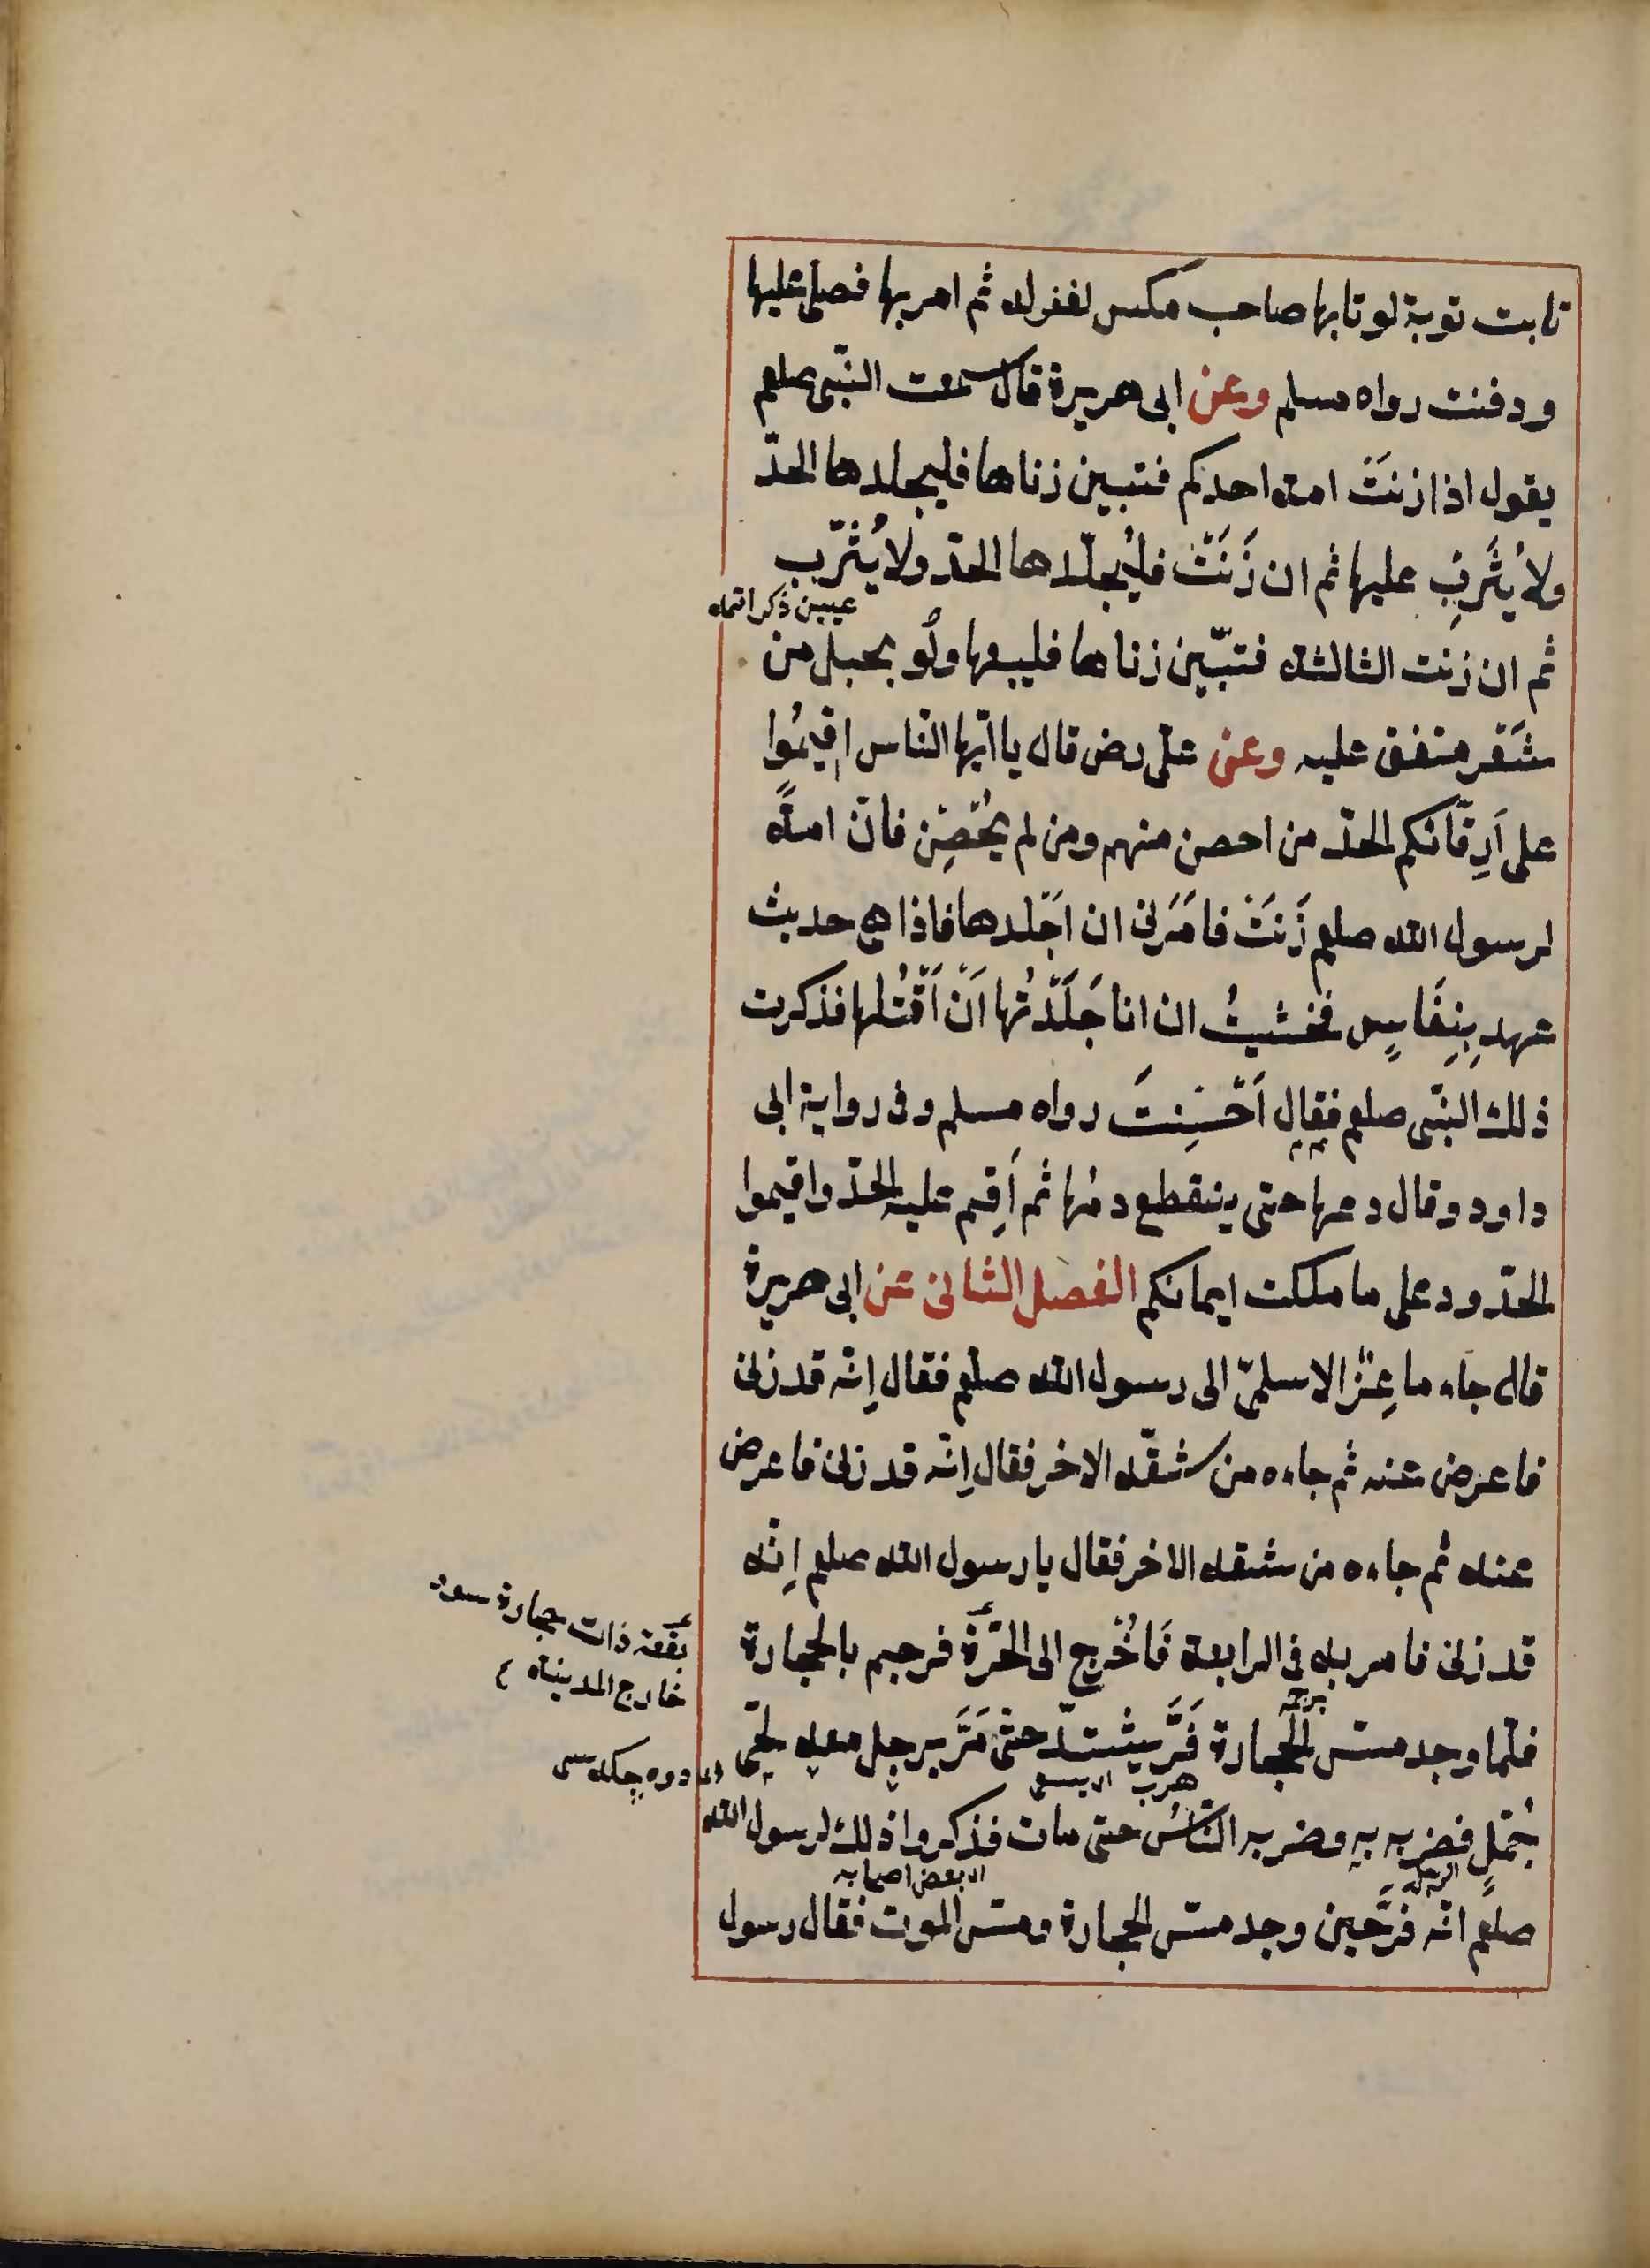 تابت توبة لو تابها صاحب مكس لغفر له ثم امر بها فصلى عليها
ودفنت رواه مسلم وعن ابى هريرة قال سمعت النبّى صلعم
يقول اذا زنَتْ امة احدكم فتبين زناها فليجلدها الحدّ
ولا يُثَرِبْ عليها ثم ان زَنَتْ فليُجلّدها الحدّ ولا يُثرّب
عيبين ذكر اتمه
ثم ان زنت الثالثة فتبّين زناها فليبعها ولَو بحبل من
شَعَر متفق عليه وعن علىّ رض قال يا ايّها النّاس اقيمُوا
على اَرِقّائكم الحدّ من احصن منهم ومن لم يُحْصِن فانّ امةً
لرسول الله صلعم زَنَتْ فامَرنى ان اجّلدها فاذا هى حديث
عهد بِنِفَاسٍ فخشيتُ ان انا جَلَدْتُها اَنْ اَقْتُلها فذكرت
ذلك النبّى صلعم فقال اَحْسَنتَ رواه مسلم وفى رواية ابى
داود وقال دعها حتى ينقطع دمُها ثم اَقِم عليه الحدّ واقيموا
الحدّود على ما ملكت ايمانكم الفصل الثانى عن ابى هريرة
قال جاء ماعِزٌ الاسلمىّ الى رسول الله صلعم فقال اِنّه قد زنى
فاعرض عنه ثم جاءه من شقّه الاخر فقال اِنّه قد زنى فاعرض
عنه ثم جاءه من شقه الاخر فقال يا رسول الله صلعم اِنّه
قد زنى فامر به فى الرابعة فَاُخْرج الى الحَرَّة فرجم بالحجارة
بقعة ذات حجارة سود
خارج المدينة ٤
فلّما وجد مسّ الحجارة فَرَّ يشتدّ حتّى مَرَّ برجل معه لَحْى
هرب
جُمَلٍ فضربه بهِ وضربه النّاسُ حتى مات فذكروا ذلك لرسول الله
الرجل
بعض اصحابه
صلعم انّه فرّ حين وجد مسّ الحجارة ومسّ الموت فقال رسول